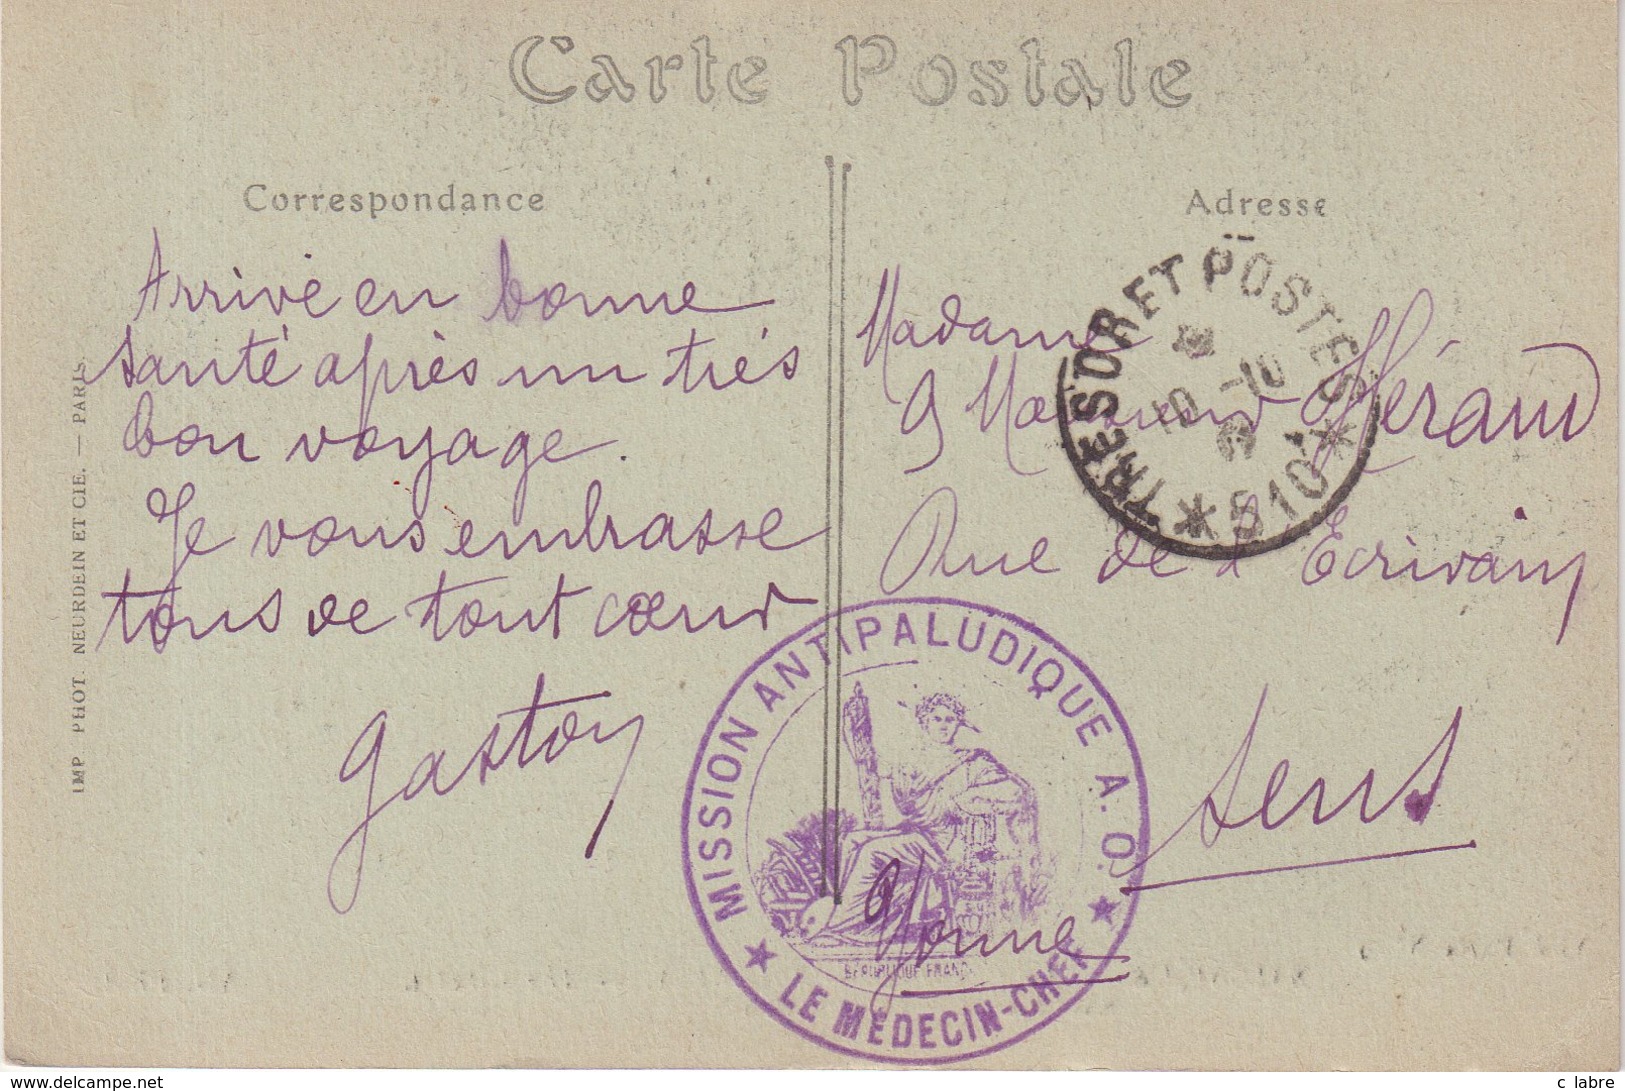 Carte Postale
Correspondance
Arrivé en bonne
santé après un très
bon voyage.
Je vous embrasse
tous de tout cœur
Gaston
Adresse
Madame
Monsieur Héraud
Rue de l'Ecrivain
Sens
Yonne
TRESOR ET POSTES
10 -10
* 510 *
MISSION ANTIPALUDIQUE A. O.
LE MÉDECIN-CHEF
RÉPUBLIQUE FRANC
IMP PHOT. NEURDEIN ET CIE. — PARIS
www.delcampe.net
c labre